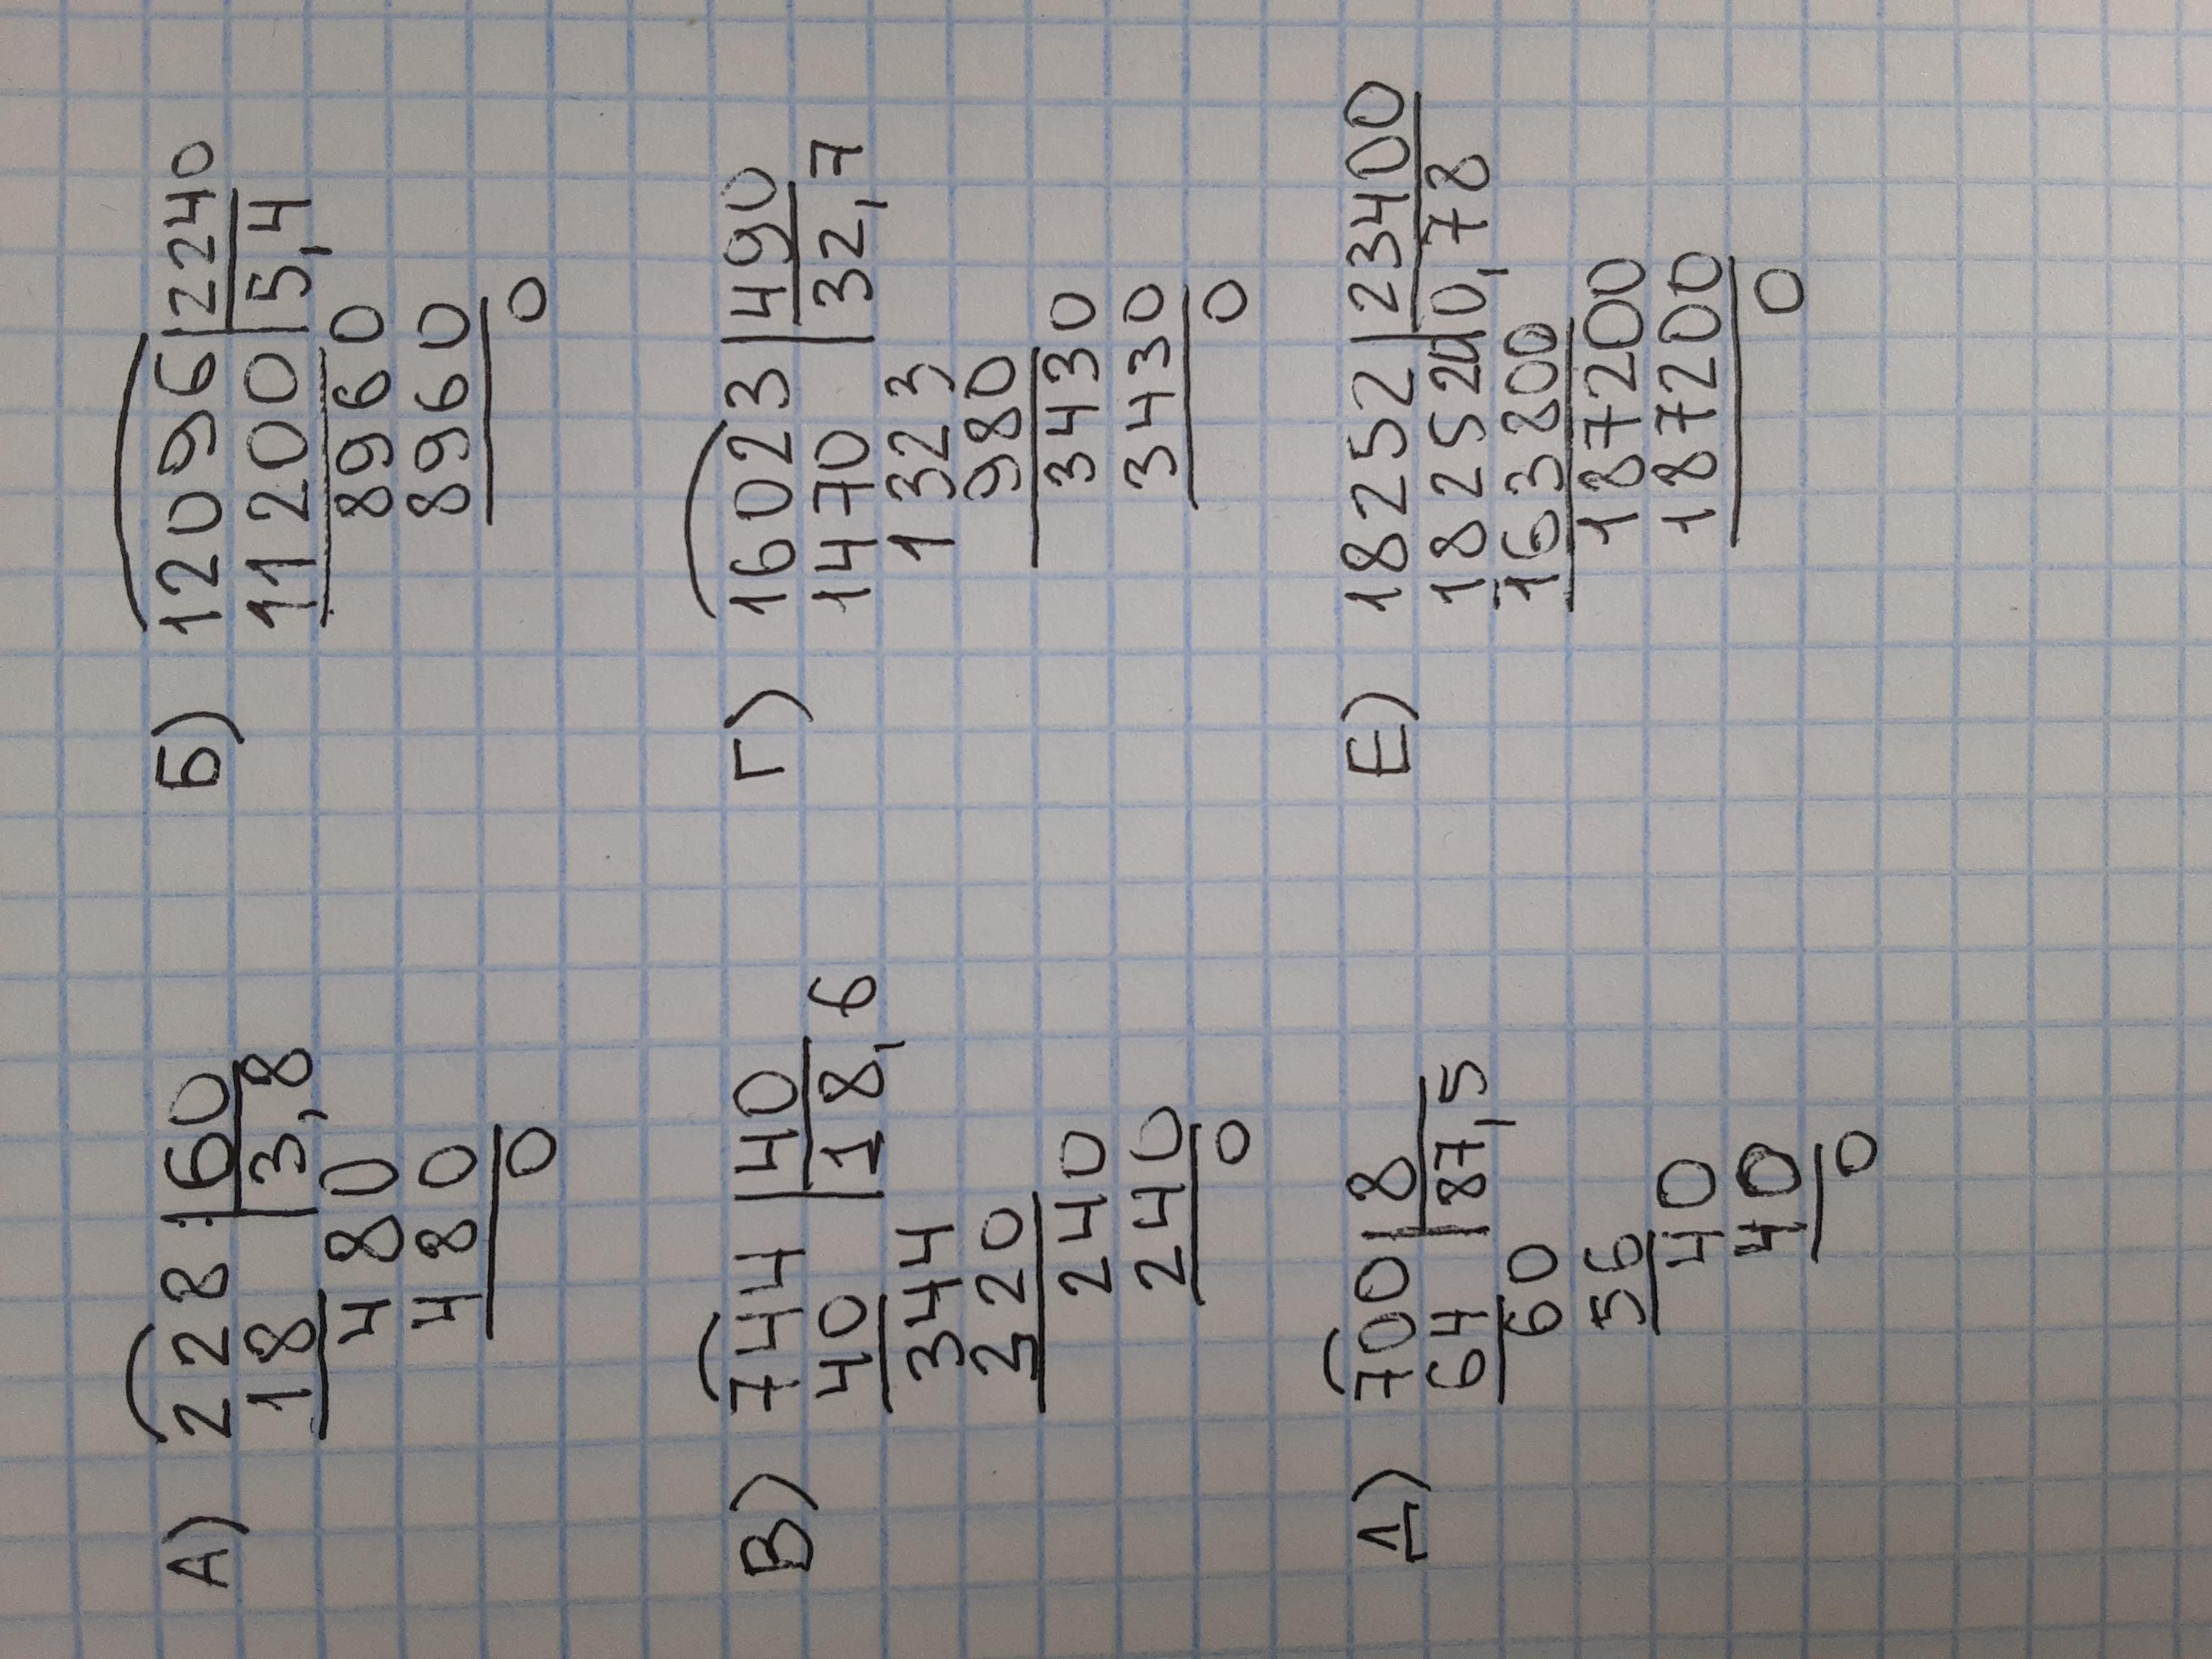 А) 228:|60
18|3,8
480
480
0
Б) 12096|2240
11200|5,4
8960
8960
0
В) 744|40
40|18,6
344
320
240
240
0
Г) 16023|490
1470|32,7
1323
980
3430
3430
0
Д) 700|8
64|87,5
60
56
40
40
0
Е) 18252|23400
182520|0,78
163800
187200
187200
0